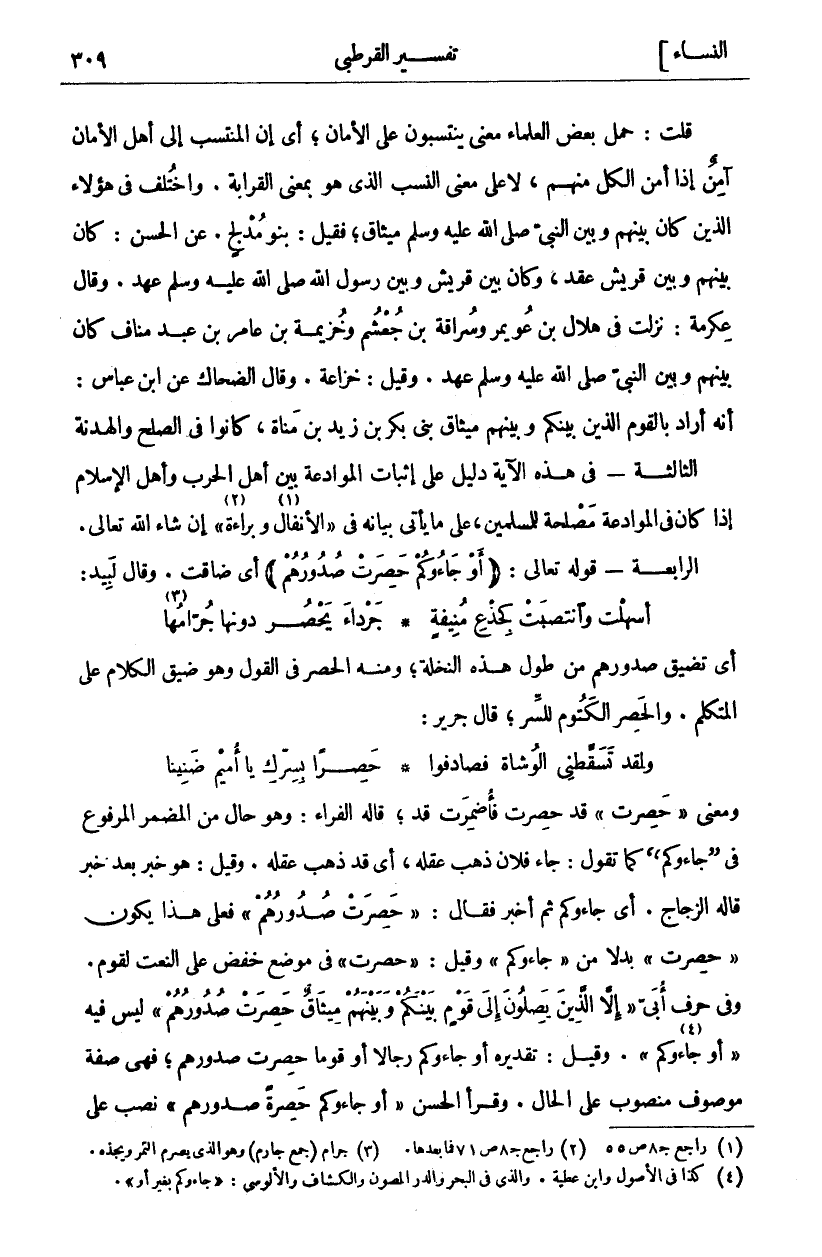 النساء] تفسير القرطبى ٣٠٩
قلت : حمل بعض العلماء معنى ينتسبون على الأمان ؛ أى إن المنتسب إلى أهل الأمان
آمِنٌ إذا أمن الكل منهم ، لا على معنى النسب الذى هو بمعنى القرابة . واختُلف فى هؤلاء
الذين كان بينهم وبين النبىّ صلى الله عليه وسلم ميثاق؛ فقيل : بنو مُدْلج . عن الحسن : كان
بينهم وبين قريش عقد ، وكان بين قريش وبين رسول الله صلى الله عليه وسلم عهد . وقال
عكرمة : نزلت فى هلال بن عُويمر وسُراقة بن جُعْشُم وخُزيمة بن عامر بن عبد مناف كان
بينهم وبين النبىّ صلى الله عليه وسلم عهد . وقيل : خزاعة . وقال الضحاك عن ابن عباس :
أنه أراد بالقوم الذين بينكم وبينهم ميثاق بنى بكر بن زيد بن مَناة ، كانوا فى الصلح والهدنة
الثالثة — فى هذه الآية دليل على إثبات الموادعة بين أهل الحرب وأهل الإسلام
إذا كان فى الموادعة مَصْلحة للسلمين، على ما يأتى بيانه فى «الأنفال (١) وبراءة (٢)» إن شاء الله تعالى.
الرابعة — قوله تعالى : ﴿أَوْ جَاءُوكُمْ حَصِرَتْ صُدُورُهُمْ﴾ أى ضاقت . وقال لَبِيد :
أسهلْت وٱنتصبَتْ كجذع مُنيفةٍ * جَرْداءَ يَحْصُر دونها جُرّامُها (٣)
أى تضيق صدورهم من طول هذه النخلة؛ ومنه الحصر فى القول وهو ضيق الكلام على
المتكلم . والحَصِر الكَتُوم للسِّر ؛ قال جرير :
ولقد تَسَقَّطنِى الوُشاة فصادفوا * حَصِرًا بِسِرّكِ يا أُميْم ضَنِينا
ومعنى « حَصِرت » قد حصرت فأُضمِرَت قد ؛ قاله الفراء : وهو حال من المضمر المرفوع
فى ”جاءوكم“ كما تقول : جاء فلان ذهب عقله ، أى قد ذهب عقله . وقيل : هو خبر بعد خبر
قاله الزجاج . أى جاءوكم ثم أخبر فقال : « حَصِرَتْ صُدُورُهُمْ » فعلى هذا يكون
« حصرت » بدلا من « جاءوكم » وقيل : «حصرت» فى موضع خفض على النعت لقوم.
وفى حرف أُبَىّ « إِلَّا الَّذِينَ يَصِلُونَ إِلَى قَوْمٍ بَيْنَكُمْ وَبَيْنَهُمْ مِيثَاقٌ حَصِرَتْ صُدُورُهُمْ » ليس فيه
« أو جاءوكم (٤) » . وقيل : تقديره أو جاءوكم رجالا أو قوما حصرت صدورهم ؛ فهى صفة
موصوف منصوب على الحال . وقرأ الحسن « أو جاءوكم حَصِرةً صدورهم » نصب على
(١) راجع جـ٨ ص ٥٥ (٢) راجع جـ٨ ص ٧١ فما بعدها. (٣) جرام (جمع جارم) وهو الذى يصرم التمر ويجذه .
(٤) كذا فى الأصول وابن عطية . والذى فى البحر والدر المصون والكشاف والألوسى : «جاءوكم بغير أو» .